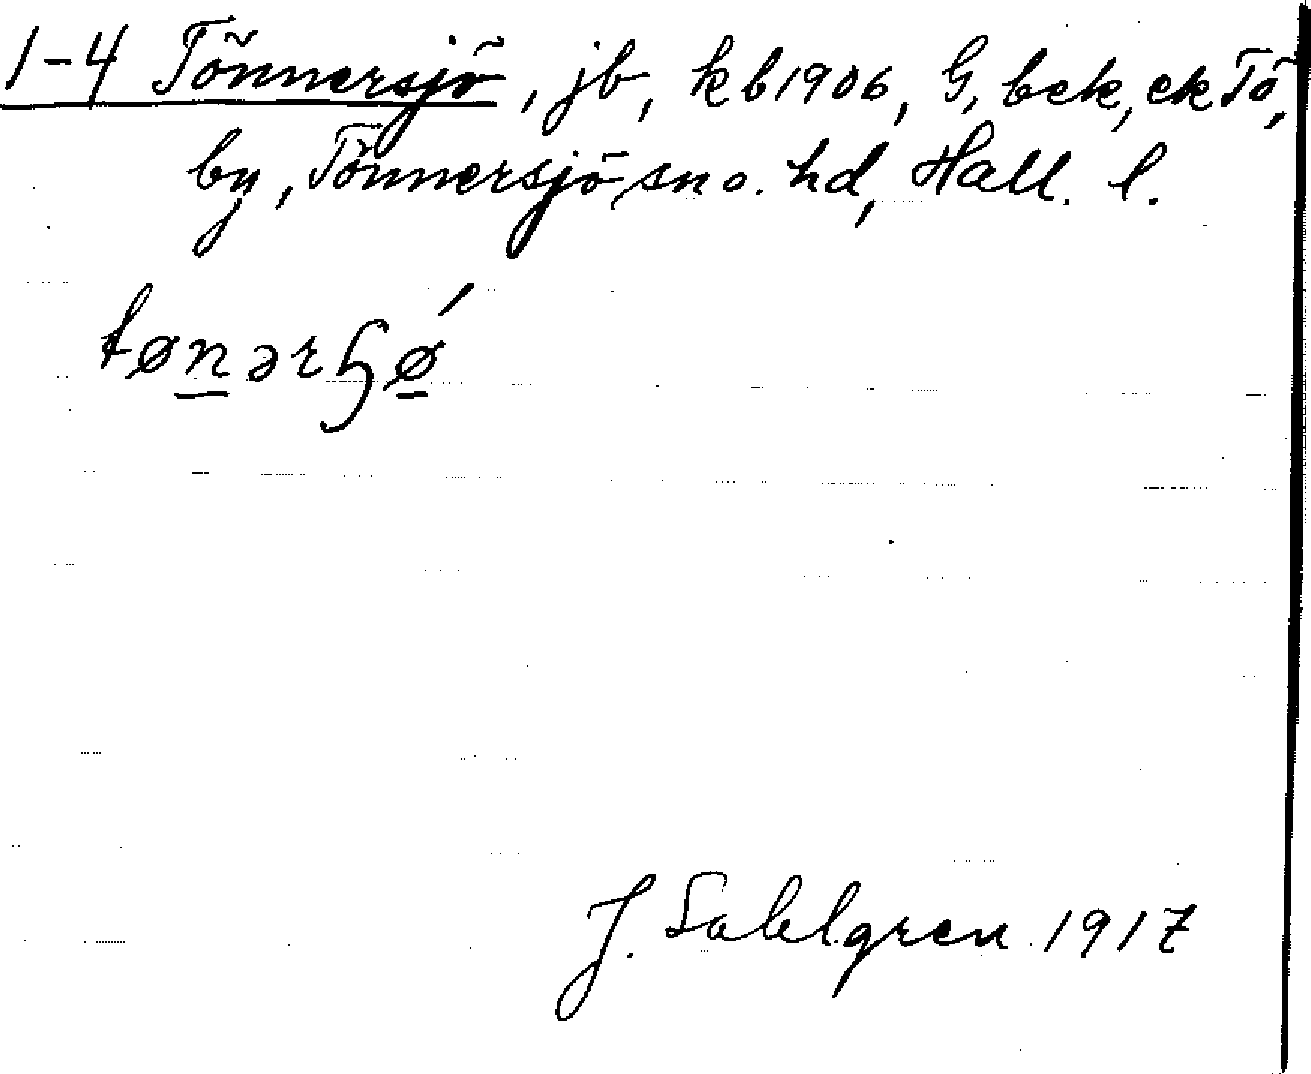 1-4 Tönnersjö, jb, kb 1906, G, bek, ek Tö,
by, Tönnersjö sn o. hd, Hall. l.
tønərɧǿ
J. Sahlgren 1917